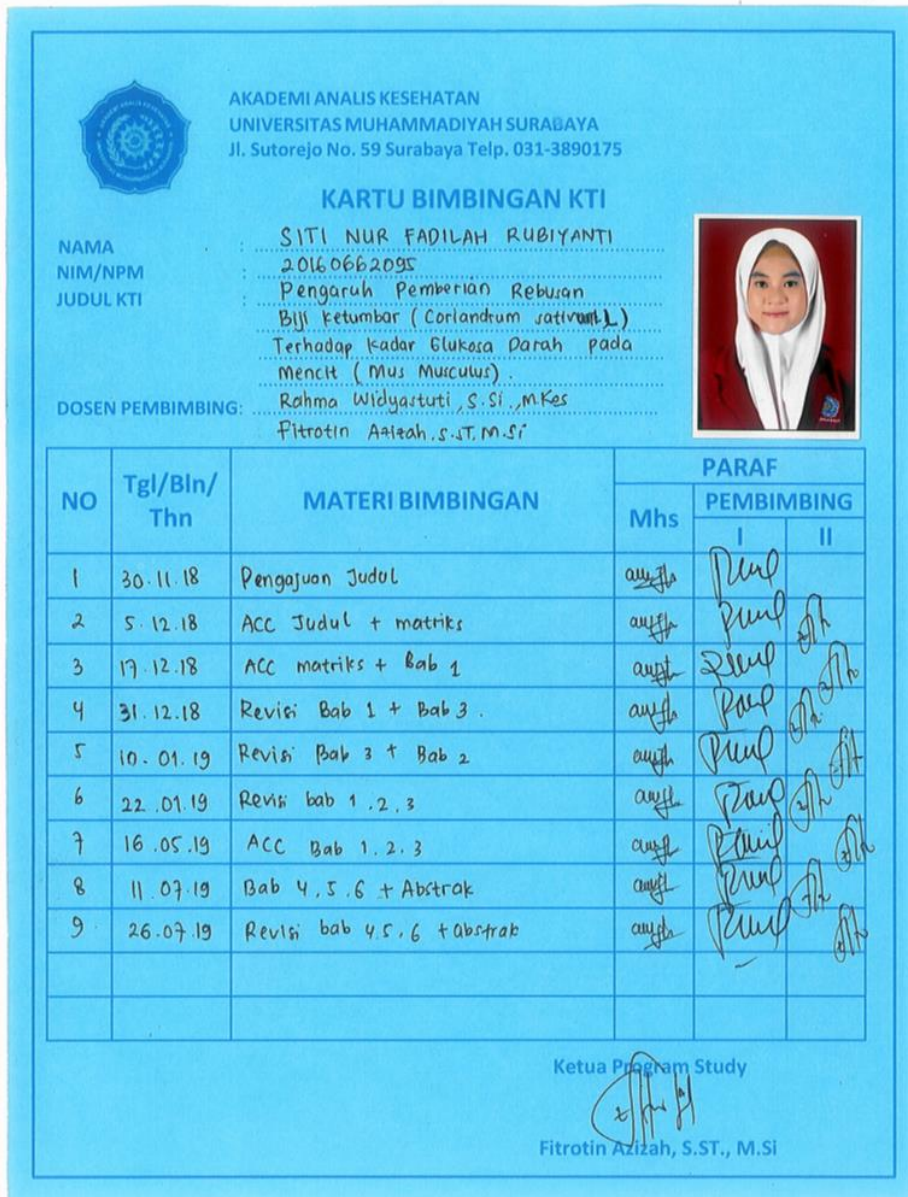 AKADEMI ANALIS KESEHATAN
UNIVERSITAS MUHAMMADIYAH SURABAYA
Jl. Sutorejo No. 59 Surabaya Telp. 031-3890175
KARTU BIMBINGAN KTI
NAMA : SITI NUR FADILAH RUBIYANTI
NIM/NPM : 20160662095
JUDUL KTI : Pengaruh Pemberian Rebusan
Biji Ketumbar (Coriandrum sativum L)
Terhadap Kadar Glukosa Darah pada
Mencit (Mus Musculus).
DOSEN PEMBIMBING: Rahma Widyastuti, S.Si., M.Kes
Fitrotin Azizah, S.ST, M.Si
NO Tgl/Bln/Thn MATERI BIMBINGAN PARAF
Mhs PEMBIMBING
I II
1 30.11.18 Pengajuan Judul
2 5.12.18 ACC Judul + matriks
3 17.12.18 ACC matriks + Bab 1
4 31.12.18 Revisi Bab 1 + Bab 3.
5 10.01.19 Revisi Bab 3 + Bab 2
6 22.01.19 Revisi bab 1.2.3
7 16.05.19 ACC Bab 1.2.3
8 11.07.19 Bab 4,5,6 + Abstrak
9 26.07.19 Revisi bab 4.5.6 + abstrak
Ketua Program Study
Fitrotin Azizah, S.ST., M.Si